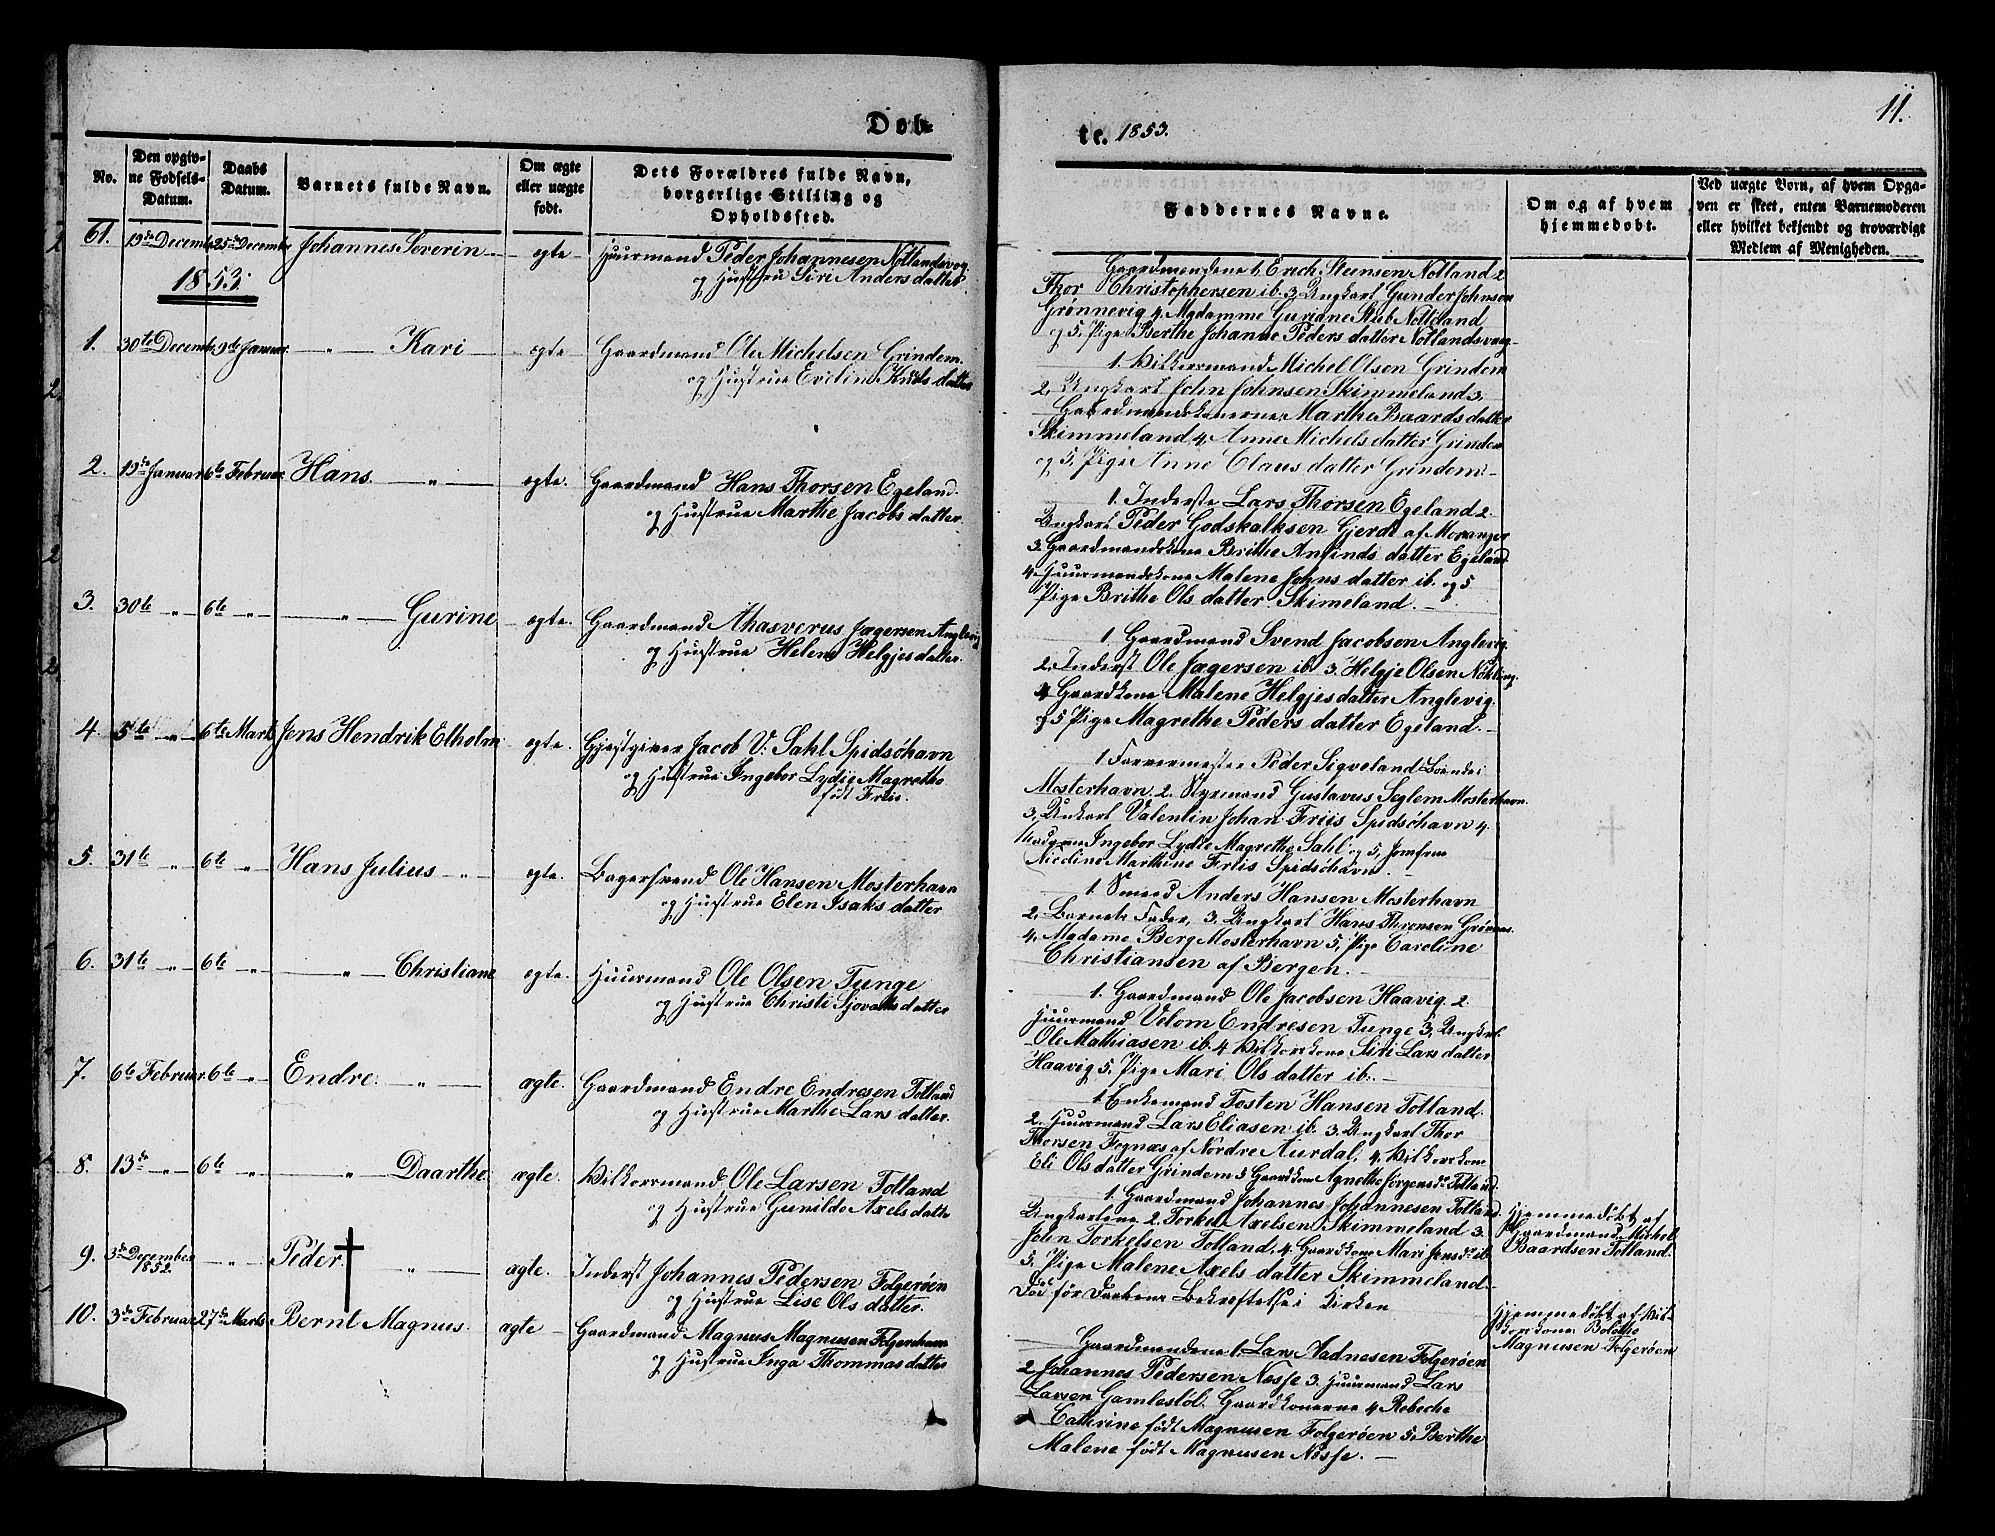 Døb-
No.
Den opgiv-
ne Fødsels-
Datum.
Daabs
Datum.
Barnets fulde Navn.
Om ægte
eller uægte
født.
Dets Forældres fulde Navn,
borgerlige Stilling og
Opholdssted.
61. 19de Decemb. 25de Decembr Johannes Severin - ægte - Huurmand Peder Johannesen Notlandsvog
og Hustrue Siri Anders datter
1853
1. 30te Decemb. 9de Januar - " - Kari - ægte - Gaardmand Ole Michelsen Grindem
og Hustrue Evelin Knuds datter
2. 19de Januar 6te Februar Hans. - " - ægte. Gaardmand Hans Thorsen Egeland.
og Hustrue Marthe Jacobs datter.
3. 30te - " - 6te - " - - " - Gurine - ægte. Gaardmand Ahasverus Jægersen Anglevig
og Hustrue Helene Helgjes datter.
4. 5te - " - 6te Marts Jens Hendrik Elholm ægte. Gjestgiver Jacob V. Sahl Spidsøhavn
og Hustrue Ingebor Lydie Magrethe
født Friis.
5. 31te " 6te " Hans Julius - " - ægte. Bagersvend Ole Hansen Mosterhavn
og Hustrue Elen Isaks datter
6. 31te - " - 6te - " - - " - Christiane ægte. Huurmand Ole Olsen Tunge
og Hustrue Christi Sjovalds datter
7. 6te Februar. 6te - " - Endre. - " - ægte. Gaardmand Endre Endresen Totland
og Hustrue Marthe Lars datter.
8. 13de - " - 6te " - " - Daarthe ægte. Vilkorsmand Ole Larsen Totland
og Hustrue Gunilde Axels datter
9. 3de December - " - Peder. † - " - ægte. Inderst Johannes Pedersen Folgerøen
1852.
og Hustrue Lise Ols datter.
10. 3de Februar 27de Marts Bernt Magnus. ægte - Gaardmand Magnus Magnusen Folgerøhavn
og Hustrue Inga Thommas datter
te. 1853.
11.
Faddernes Navne.
Om og af hvem
hjemmedøbt.
Ved uægte Born, af hvem Opga-
ven er skeet, enten Barnemoderen
eller hvilket bekjendt og troværdigt
Medlem af Menigheden.
Gaardmændene 1, Erich Steensen Notland 2
Thor Christophersen ib. 3. Ungkarl Gunder Johnson
Grønnevig 4. Mgdamme Guriane Stub Notteland
og 5, Pige Berthe Johanne Peders datter Notlandsvaag
1. Vilkorsmand Michel Olsen Grindem
2, Ungkarl John Johnsen Skimmeland 3,
Gaardmandskonerne, Marthe Baards datter
Skimmeland 4, Anne Michels datter Grindem
og 5, Pige Anne Claus datter Grindem -
1. Inderste Lars Thorsen Egeland 2.
Ungkarl Peder Godskalksen Gjerdt af Moranger
3. Gaardmandskone Brithe Anfinds datter Egeland
4. Huurmandskone Malene Johns datter ib. og 5
Pige Brithe Ols datter. Skimeland. -
1. Gaardmand Svend Jacobsen Anglevig.
2. Inderst Ole Jægersen ib. 3. Helgje Olsen
4 Gaardkone Malene Helgjes datter Anglevig.
og 5 Pige Magrethe Peders datter Egeland. -
1 Farvermester Peder Sigveland Boende i
Mosterhavn. 2. Styrmand Gustavus Seglem Mosterhavn.
3, Unkarl Valentin Johan Friis Spidsøhavn 4.
Madgam Ingebor Lydie Magrethe Sahl og 5, Jomfrue
Nicoline Marthine Friis Spidsøhavn.
1. Smed Anders Hansen Mosterhavn
2, Barnets Fader, 3. Ungkarl Hans Thronsen
4, Madame Berg Mosterhavn 5, Pige Caroline
Christiansen af Bergen. -
1. Gaardmand Ole Jacobsen Haavig. 2.
Huurmand Velom Endresen Tunge 3, Ungkarl
Ole Mathiasen ib. 4 Vilkorskone Siri Lars datter
Haavig 5. Pige Mari Ols datter ib. -
1. Enkemand Tosten Hansen Totland.
2. Huurmand Lars Eliasen ib. 3. Ungkarl Thor
Thorsen Fognæs af Nordre Aurdal. 4. Vilkorskone
Eli Ols datter Grindem 5 Gaardkone Agnethe Jørgensdr Totland.
1. Gaardmand Johannes Johannesen Totland.
Ungkarlene 2. Torkel Axelsen Skimmeland 3.
John Torkelsen Totland. 4 Gaardkone Mari Jensdr ib.
5. Pige Malene Axels datter Skimmeland -
Død før Daabens Bekræftelse i Kirken
Gaardmændene 1. Lars Aadnesen Folgerøen
2 Johannes Pedersen Nesse 3. Huurmand Lars
Larsen Gamlestøl. Gaardkonerne 4 Rebeche
Cathrine født Magnusen Folgerøen 5. Berthe
Malene født Magnusen Nesse. -
Hjemmedøbt af
Gaardmand Michel
Baardsen Totland.
Hjemmedøbt af Vil-
korskone Bolethe
Magnusen Folgerøen